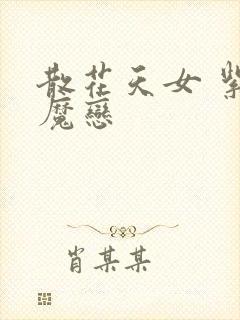 散花天女 紫
魔戀
肖某某